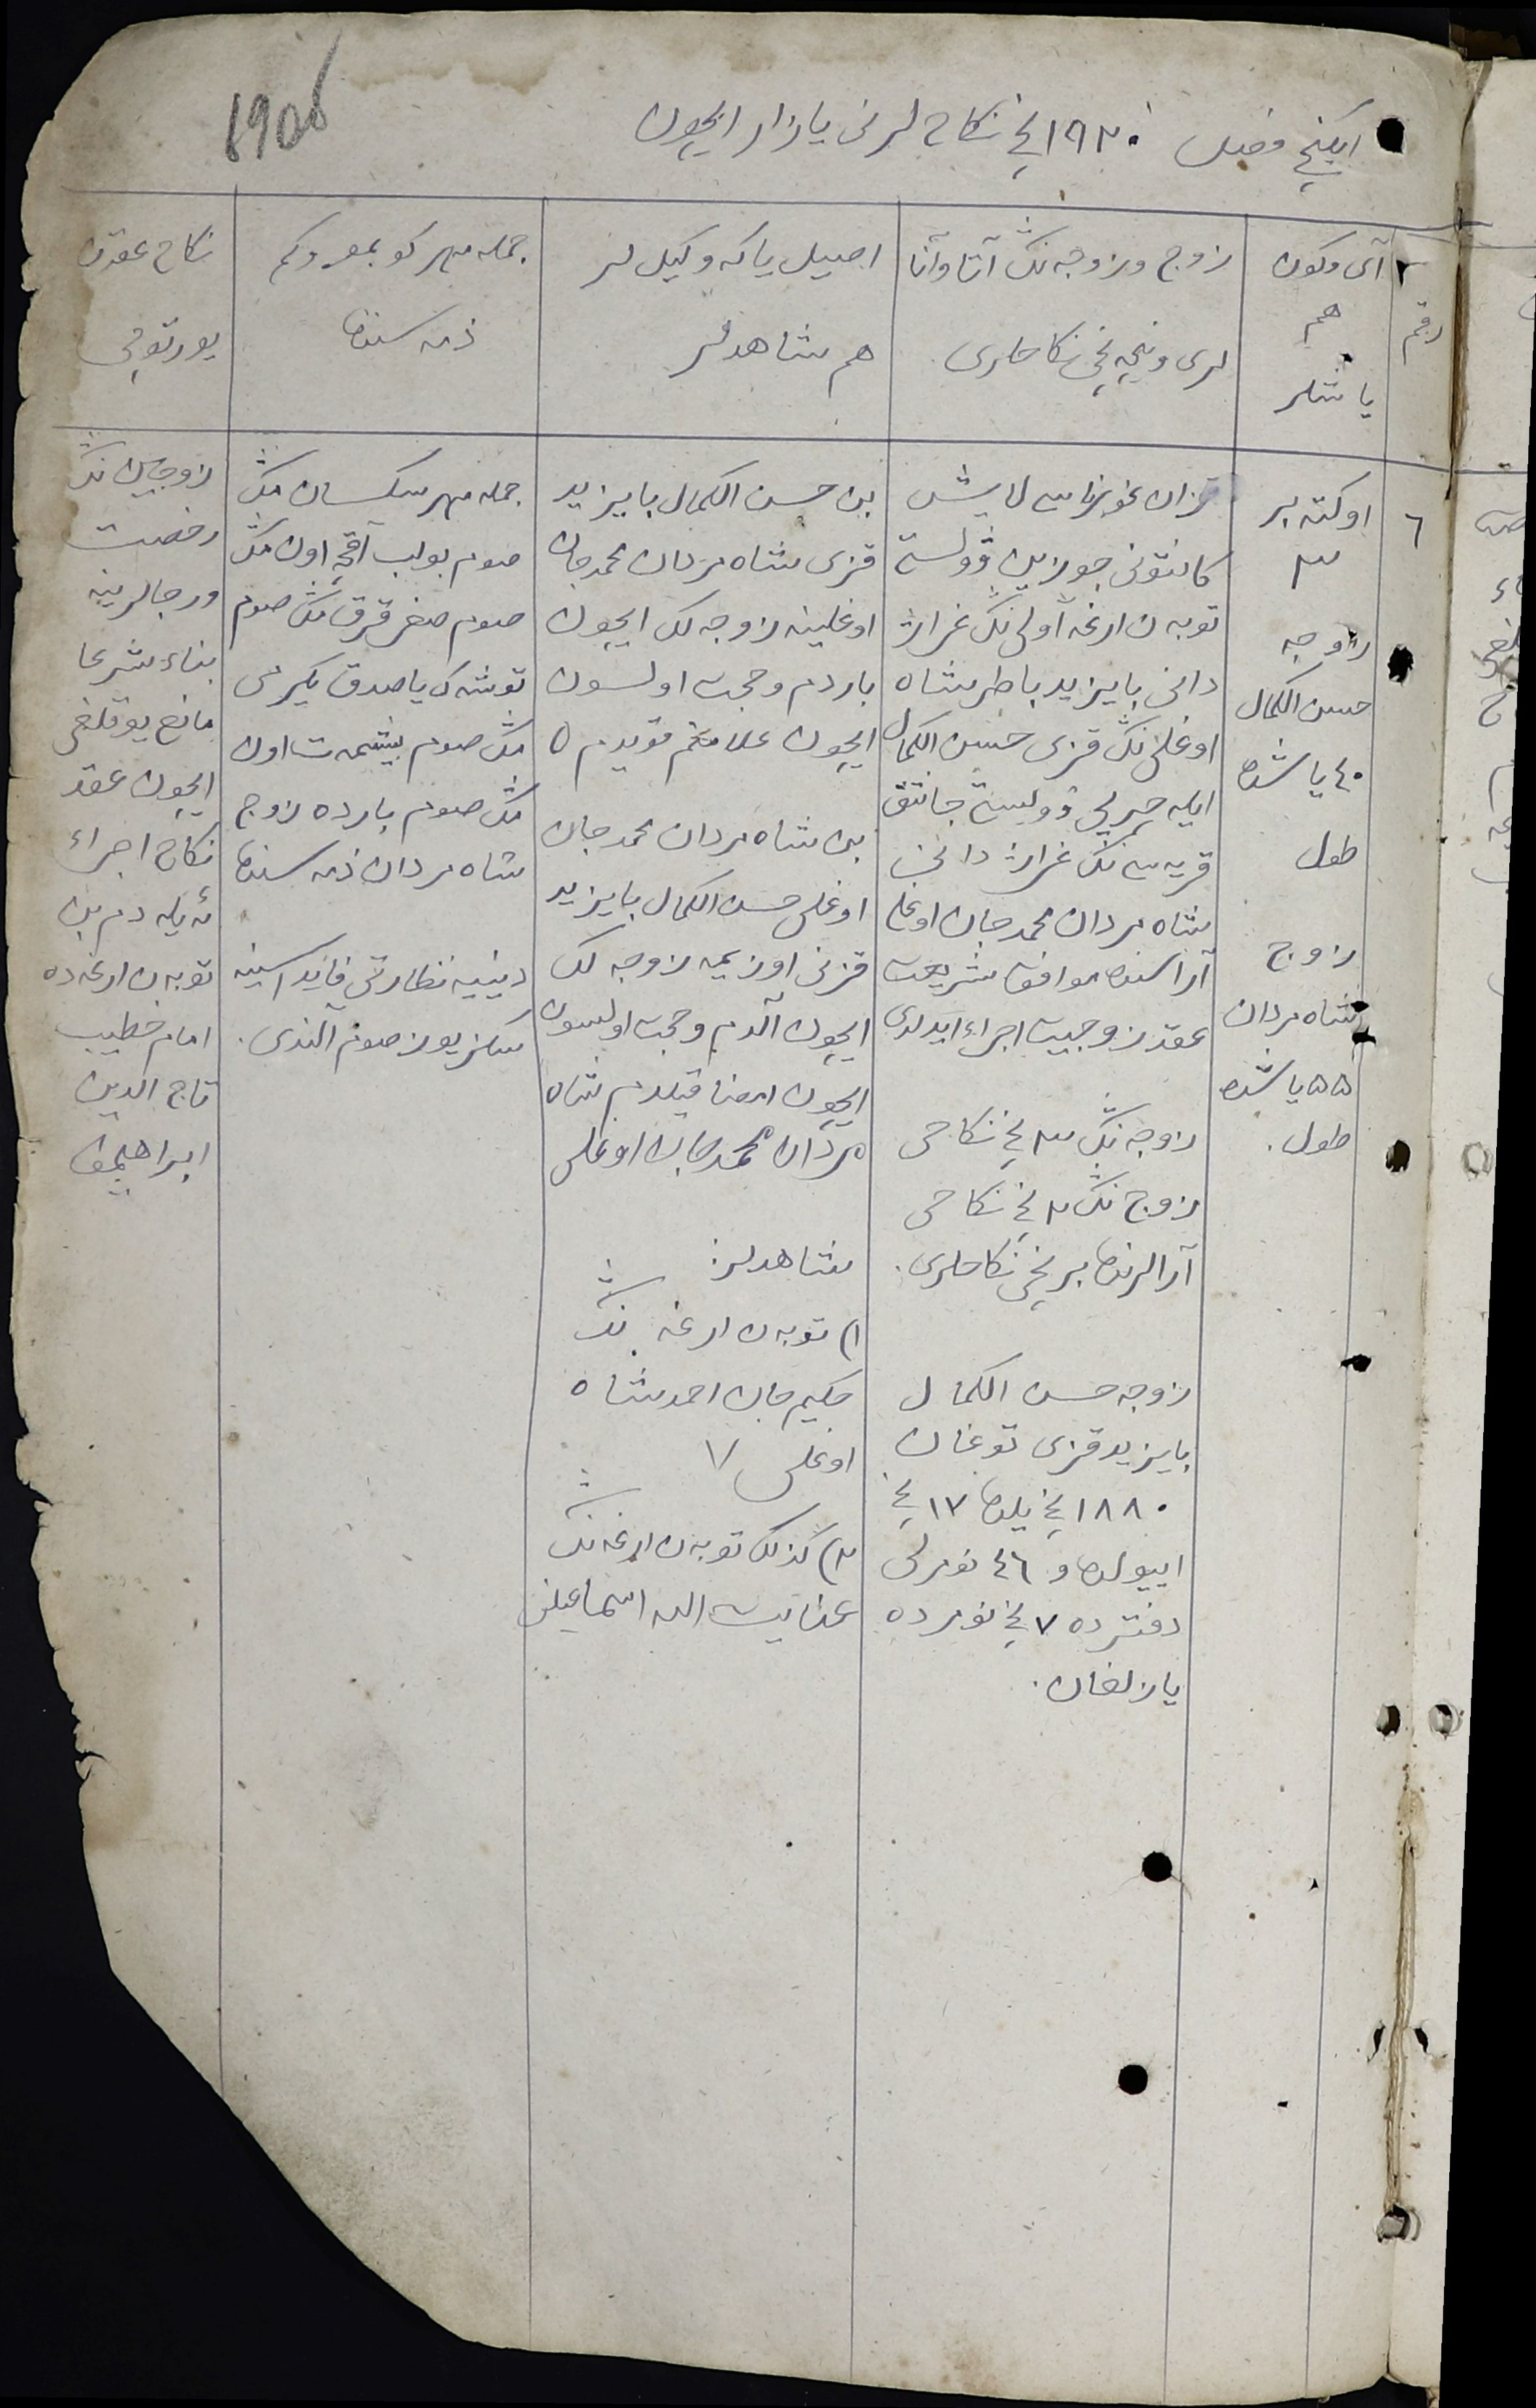 1905
ایکنچی فصل ١٩٢٠ نچی نکاح لرنی یازار ایچون
رقم
آی و کون
هم
یاشلر
زوج و زوجه ننگ آتا و آنا
لری و نیچه نچی نکاحلری
اصیل یا که وکیل لر
هم شاهدلر
جمله مهر کو بمو و کم
ذمه سنده
نکاح عقدن
یورتوچی
٦
اوکتەبر
٣
زوجه
حسن الکمال
٤٠ یاشده
طول
زوج
شاه مردان
٥٥ یاشده
طول
قزان غوبرناسی لایش
کانتونی چورنلی وولستی
توبەن ارغه آولی ننگ غراژ
دانی بایزید باطرشاه
اوغلی ننگ قزی حسن الکمال
ایله وولستی
قریه سی ننگ غراژدانی
شاه مردان محمدجان اوغلی
آراسنده موافق شریعت
عقد زوجیت اجراء ایدلدی
زوجه ننگ ٣ نچی نکاحی
زوج ننگ ٢ نچی نکاحی
آرالرنده برنچی نکاحلری.
زوجه حسن الکمال
بایزید قزی توغان
١٨٨٠ نچی یلده ١٧ نچی
اییولده و ٤٦ نومرلی
دفترده ٧ نچی نومرده
یازلغان.
بن حسن الکمال بایزید
قزی شاه مردان محمدجان
اوغلینه زوجه لک ایچون
باردم و حجت اولسون
ایچون علامتم قویدم
بن شاه مردان محمدجان
اوغلی حسن الکمال بایزید
قزنی اوزیمه زوجه لک
ایچون آلدم و حجت اولسون
ایچون امضا قیلدم شاه
مردان محمدجان اوغلی
شاهدلر:
١) توبەن ارغه ننگ
حکیم جان احمدشاه
اوغلی ٧
٢) کذلک توبەن ارغه ننگ
عنایت الله اسماعیلف
جمله مهر سکسان منگ
صوم بولب آقچه اون منگ
صوم صغر قرق منگ صوم
توشەک یاصدق یکرمی
منگ صوم بیشمەت اون
منگ صوم بارده زوج
شاه مردان ذمه سنده
دینیه نظارتی فایداسینه
سکز یوز صوم آلندی.
زوجین ننگ
رخصت
و رجالرینه
بناء شرعا
مانع یوقلغی
ایچون عقد
نکاح اجراء
ئەیله دم بن
توبەن ارغه ده
امام خطیب
تاج الدین
ابراهیمف